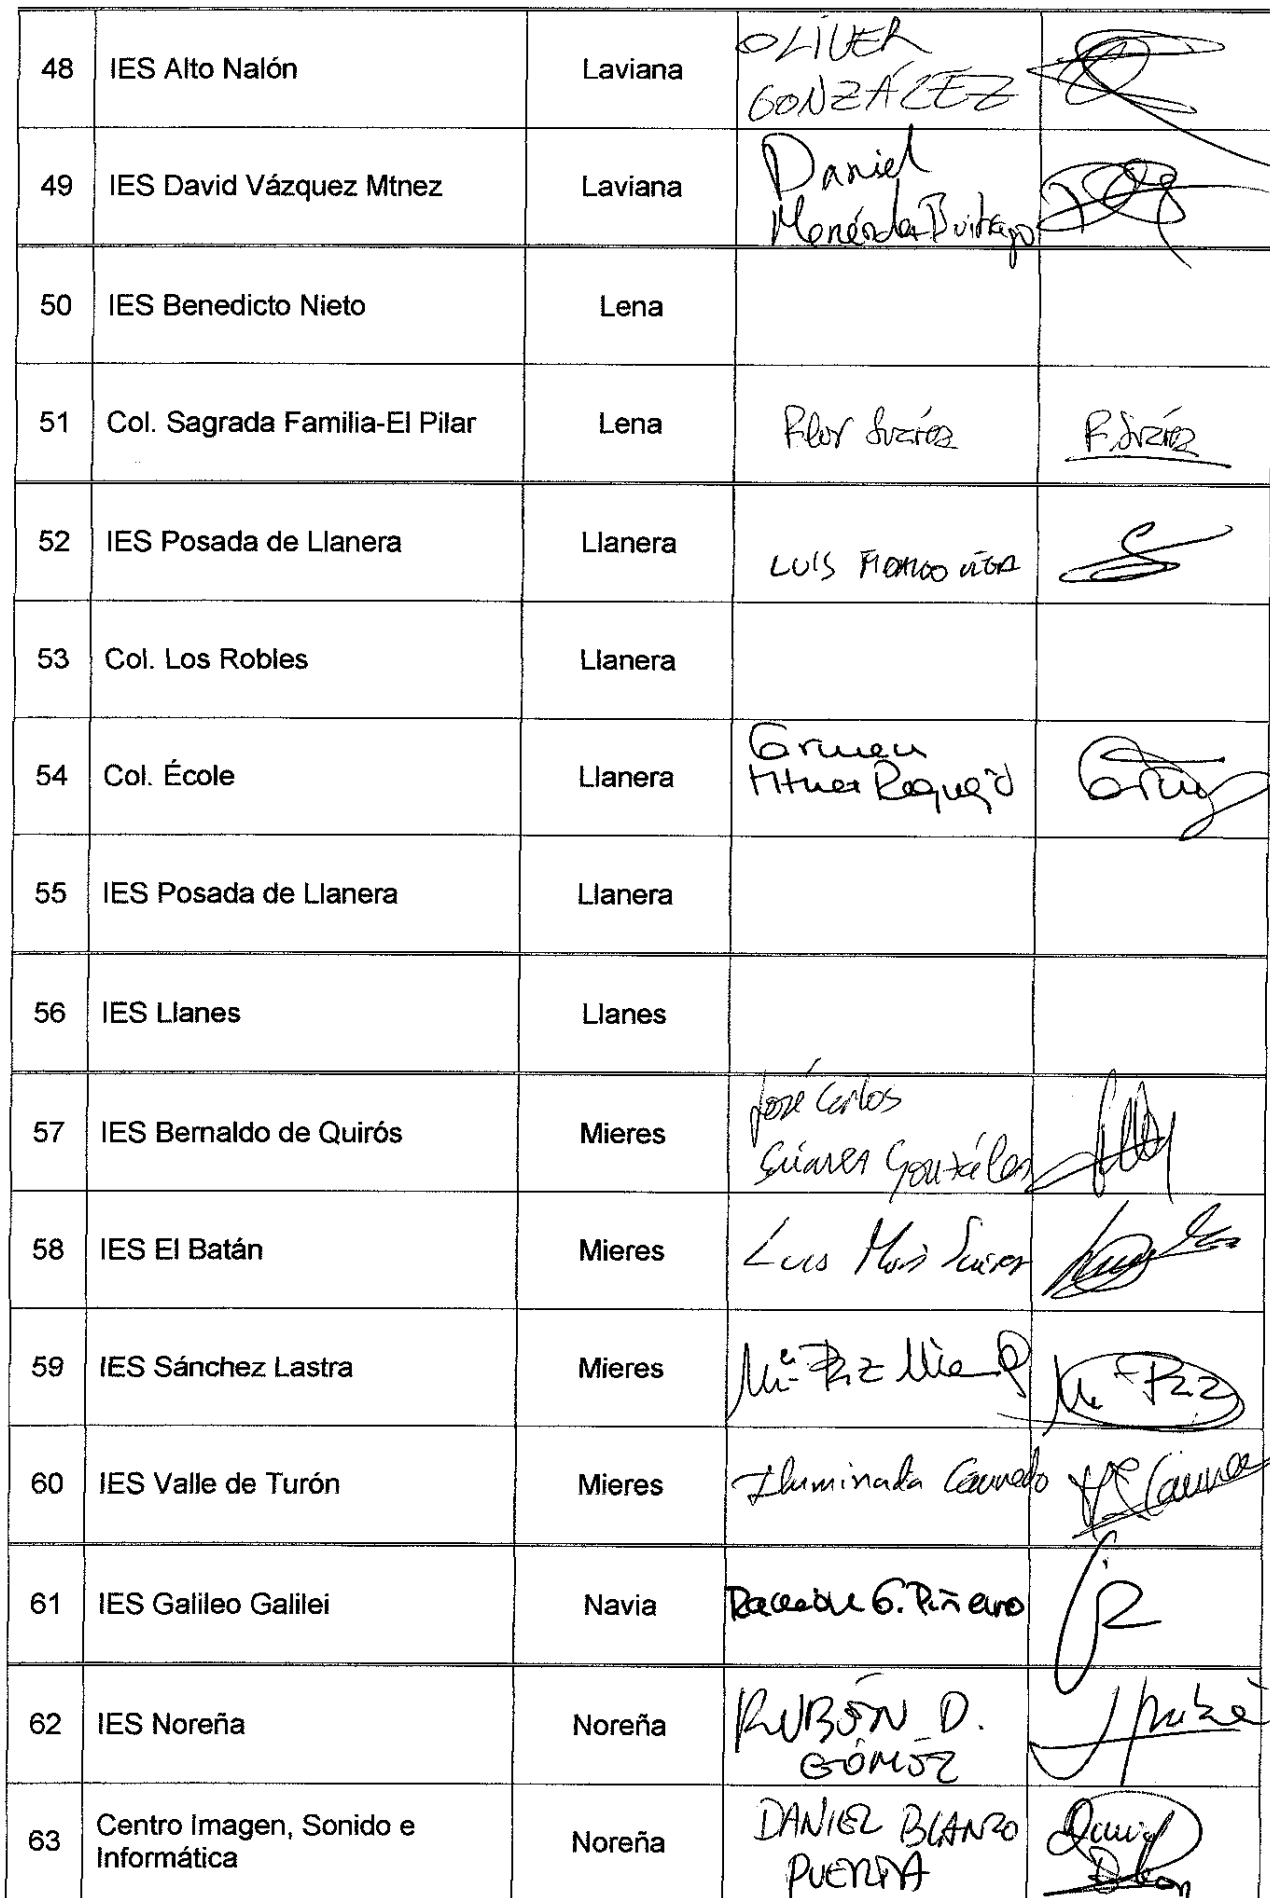 48 IES Alto Nalón Laviana OLIVER
GONZÁLEZ
49 IES David Vázquez Mtnez Laviana Daniel
Menéndez Buitrago
50 IES Benedicto Nieto Lena
51 Col. Sagrada Familia-El Pilar Lena Flor Suárez F. Suárez
52 IES Posada de Llanera Llanera LUIS
53 Col. Los Robles Llanera
54 Col. École Llanera Carmen
Mtnez
55 IES Posada de Llanera Llanera
56 IES Llanes Llanes
57 IES Bernaldo de Quirós Mieres José Carlos
Suárez González
58 IES El Batán Mieres Luis
59 IES Sánchez Lastra Mieres Mª Paz
60 IES Valle de Turón Mieres Iluminada
61 IES Galileo Galilei Navia G. Piñeiro
62 IES Noreña Noreña RUBÉN D.
GÓMEZ
63 Centro Imagen, Sonido e
Informática Noreña DANIEL BLANCO
PUERTA